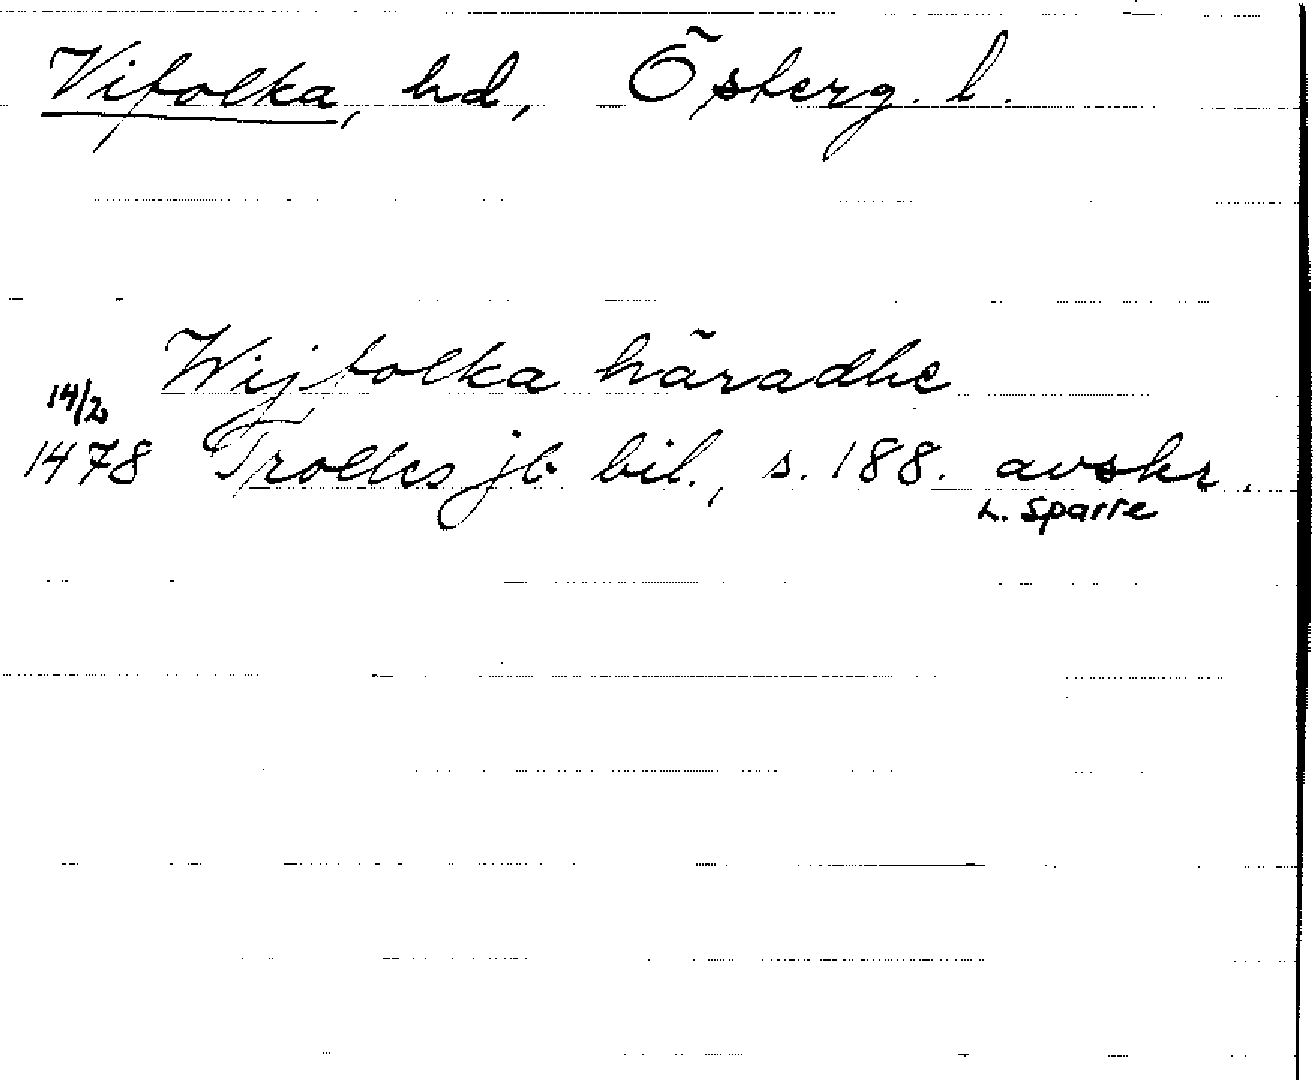 Vifolka, hd, Österg. l.
Wijfolka häradhe
14/2
1478 Trolles jb bil., s. 188. avskr.
L. Sparre